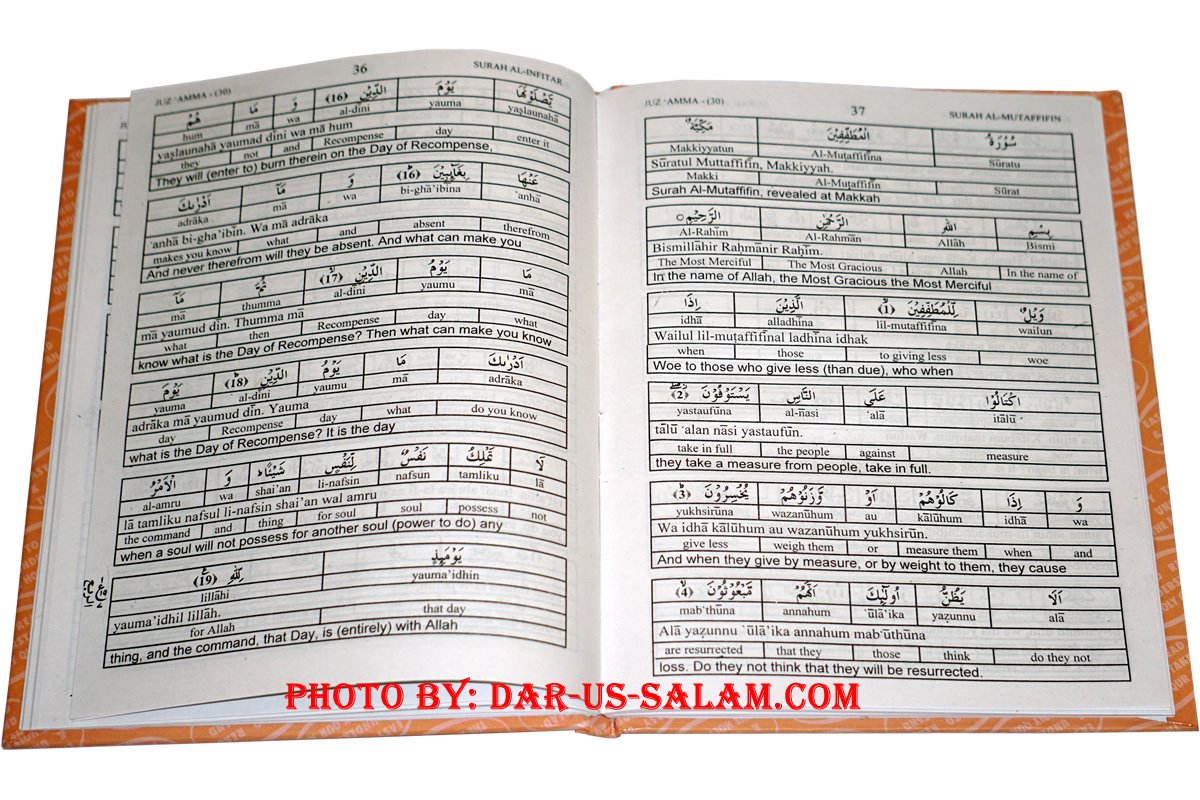 36
JUZ 'AMMA - (30) SURAH AL-INFITAR
يَّصْلَوْنَهَا يَوْمَ الدِّيْنِ ﴿16﴾ وَ مَا هُمْ
hum mā wa al-dini yauma yaṣlaunahā
yaṣlaunahā yaumad dini wa mā hum
they not and Recompense day enter it
They will (enter to) burn therein on the Day of Recompense,
عَنْهَا بِغَآىِٕبِيْنَ ﴿16﴾ وَ مَآ اَدْرٰىكَ
adrāka mā wa bi-ghā'ibina 'anhā
'anhā bi-gha'ibin. Wa mā adrāka
makes you know what and absent therefrom
And never therefrom will they be absent. And what can make you
مَا يَوْمُ الدِّيْنِ ﴿17﴾ ثُمَّ مَآ
mā thumma al-dini yaumu mā
mā yaumud din. Thumma mā
what then Recompense day what
know what is the Day of Recompense? Then what can make you know
اَدْرٰىكَ مَا يَوْمُ الدِّيْنِ ﴿18﴾ يَوْمَ
yauma al-dini yaumu mā adrāka
adrāka mā yaumud din. Yauma
day Recompense day what do you know
what is the Day of Recompense? It is the day
لَا تَمْلِكُ نَفْسٌ لِّنَفْسٍ شَيْـًٔا وَ الْاَمْرُ
al-amru wa shai'an li-nafsin nafsun tamliku lā
lā tamliku nafsul li-nafsin shai'an wal amru
the command and thing for soul soul possess not
when a soul will not possess for another soul (power to do) any
يَوْمَىِٕذٍ لِّلّٰهِ ﴿19﴾
lillāhi yauma'idhin
yauma'idhil lillāh.
for Allah that day
thing, and the command, that Day, is (entirely) with Allah
37
JUZ 'AMMA - (30) SURAH AL-MUTAFFIFIN
سُوْرَةُ الْمُطَفِّفِيْنَ مَكِّيَّةٌ
Makkiyyatun Al-Muṭaffifīna Sūratu
Sūratul Muttaffifīn, Makkiyyah.
Makki Al-Muṭaffifīn Sūrat
Surah Al-Mutaffifin, revealed at Makkah
بِسْمِ اللّٰهِ الرَّحْمٰنِ الرَّحِيْمِ
Al-Raḥīm Al-Raḥmān Allāh Bismi
Bismillāhir Raḥmānir Raḥīm.
The Most Merciful The Most Gracious Allah In the name of
In the name of Allah, the Most Gracious the Most Merciful
وَيْلٌ لِّلْمُطَفِّفِيْنَ ﴿1﴾ الَّذِيْنَ اِذَا
idhā alladhīna lil-mutaffifīna wailun
Wailul lil-muṭaffifīnal ladhīna idhak
when those to giving less woe
Woe to those who give less (than due), who when
اكْتَالُوْا عَلَى النَّاسِ يَسْتَوْفُوْنَ ﴿2﴾
yastaufūna al-nāsi 'alā itālū
tālū 'alan nāsi yastaufūn.
take in full the people against measure
they take a measure from people, take in full.
وَ اِذَا كَالُوْهُمْ اَوْ وَّزَنُوْهُمْ يُخْسِرُوْنَ ﴿3﴾
yukhsirūna wazanūhum au kālūhum idhā wa
Wa idhā kālūhum au wazanūhum yukhsirūn.
give less weigh them or measure them when and
And when they give by measure, or by weight to them, they cause
اَلَا يَظُنُّ اُولٰٓىِٕكَ اَنَّهُمْ مَّبْعُوْثُوْنَ ﴿4﴾
mab'thūna annahum 'ūlā'ika yaẓunnu alā
Alā yaẓunnu 'ūlā'ika annahum mab'ūthūna
are resurrected that they those think do they not
loss. Do they not think that they will be resurrected.
PHOTO BY: DAR-US-SALAM.COM